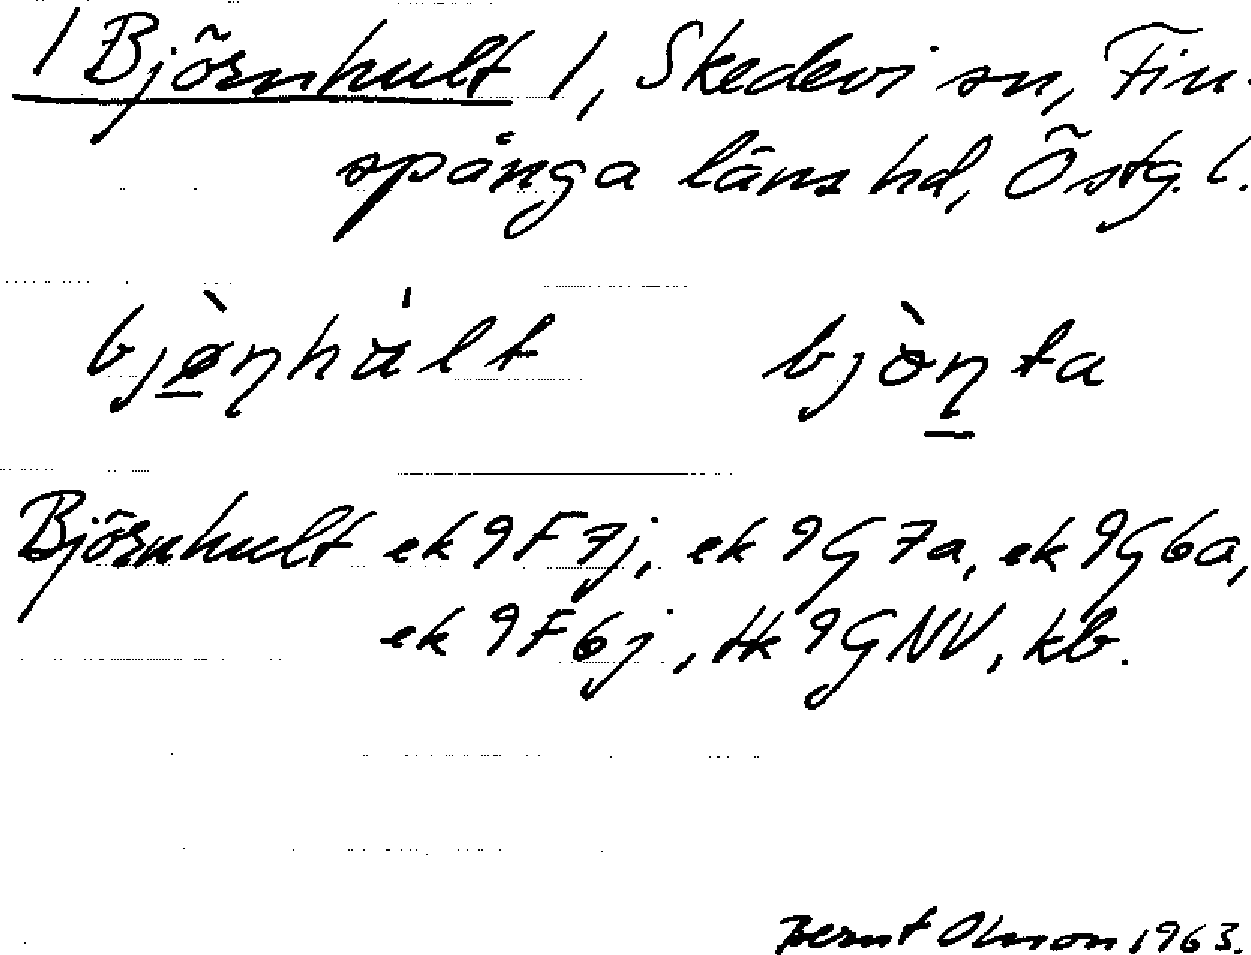 1 Björnhult 1, Skedevi sn, Fin-
spånga läns hd, Östg. l.
bjø̀ṇhált bjòṇta
Björnhult ek 9F7j, ek 9G7a, ek 9G6a,
ek 9F6j, tk 9GNV, kb.
Bernt Olsson 1963.